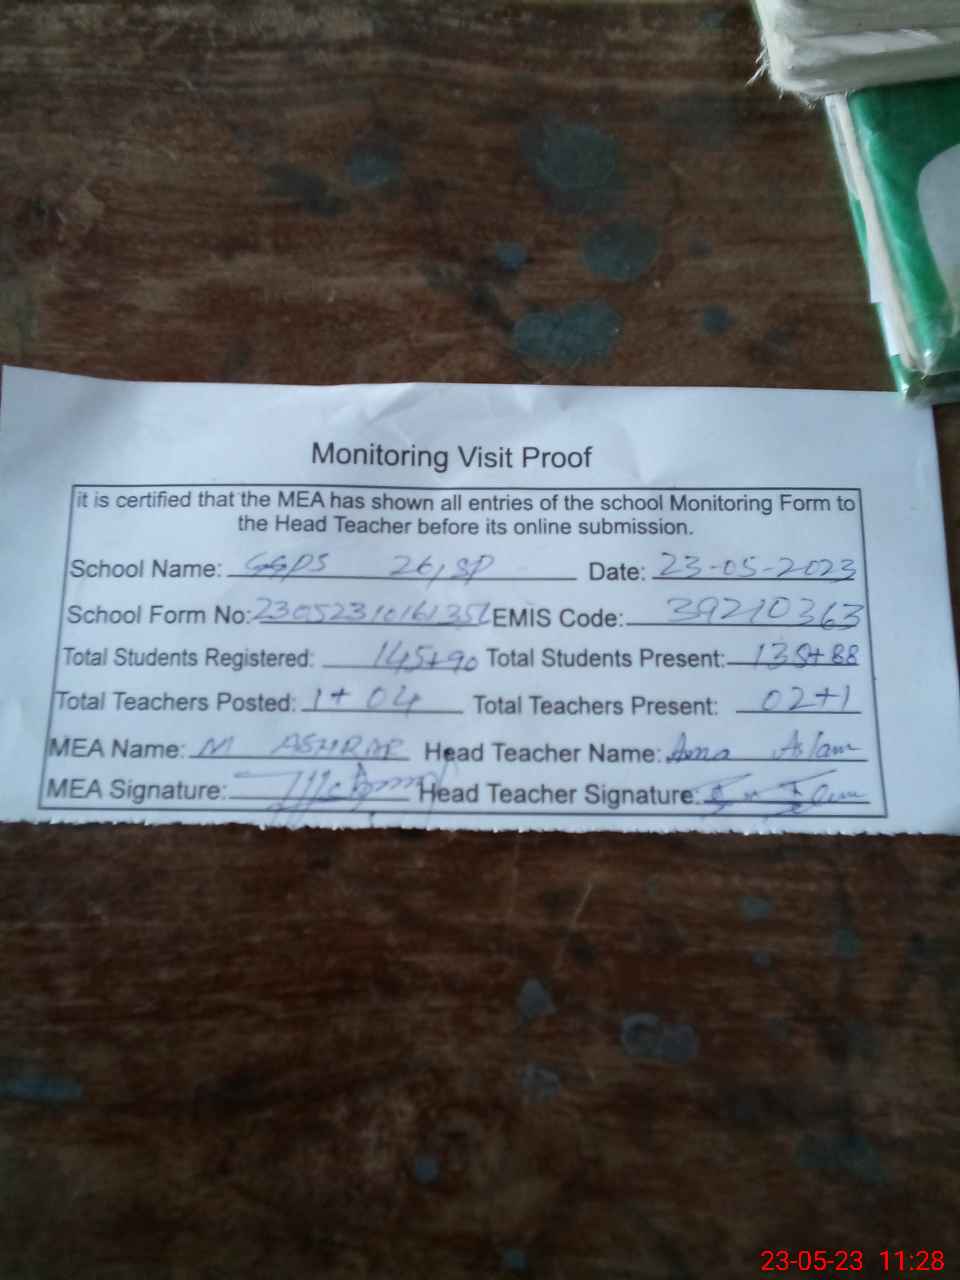 Monitoring Visit Proof
it is certified that the MEA has shown all entries of the school Monitoring Form to
the Head Teacher before its online submission.
School Name: GGPS 26/SP Date: 23-05-2023
School Form No: EMIS Code: 39210363
Total Students Registered: 145+90 Total Students Present: 138+88
Total Teachers Posted: 1+04 Total Teachers Present: 02+1
MEA Name: M ASHRAF Head Teacher Name: Asma Aslam
MEA Signature: Head Teacher Signature:
23-05-23 11:28